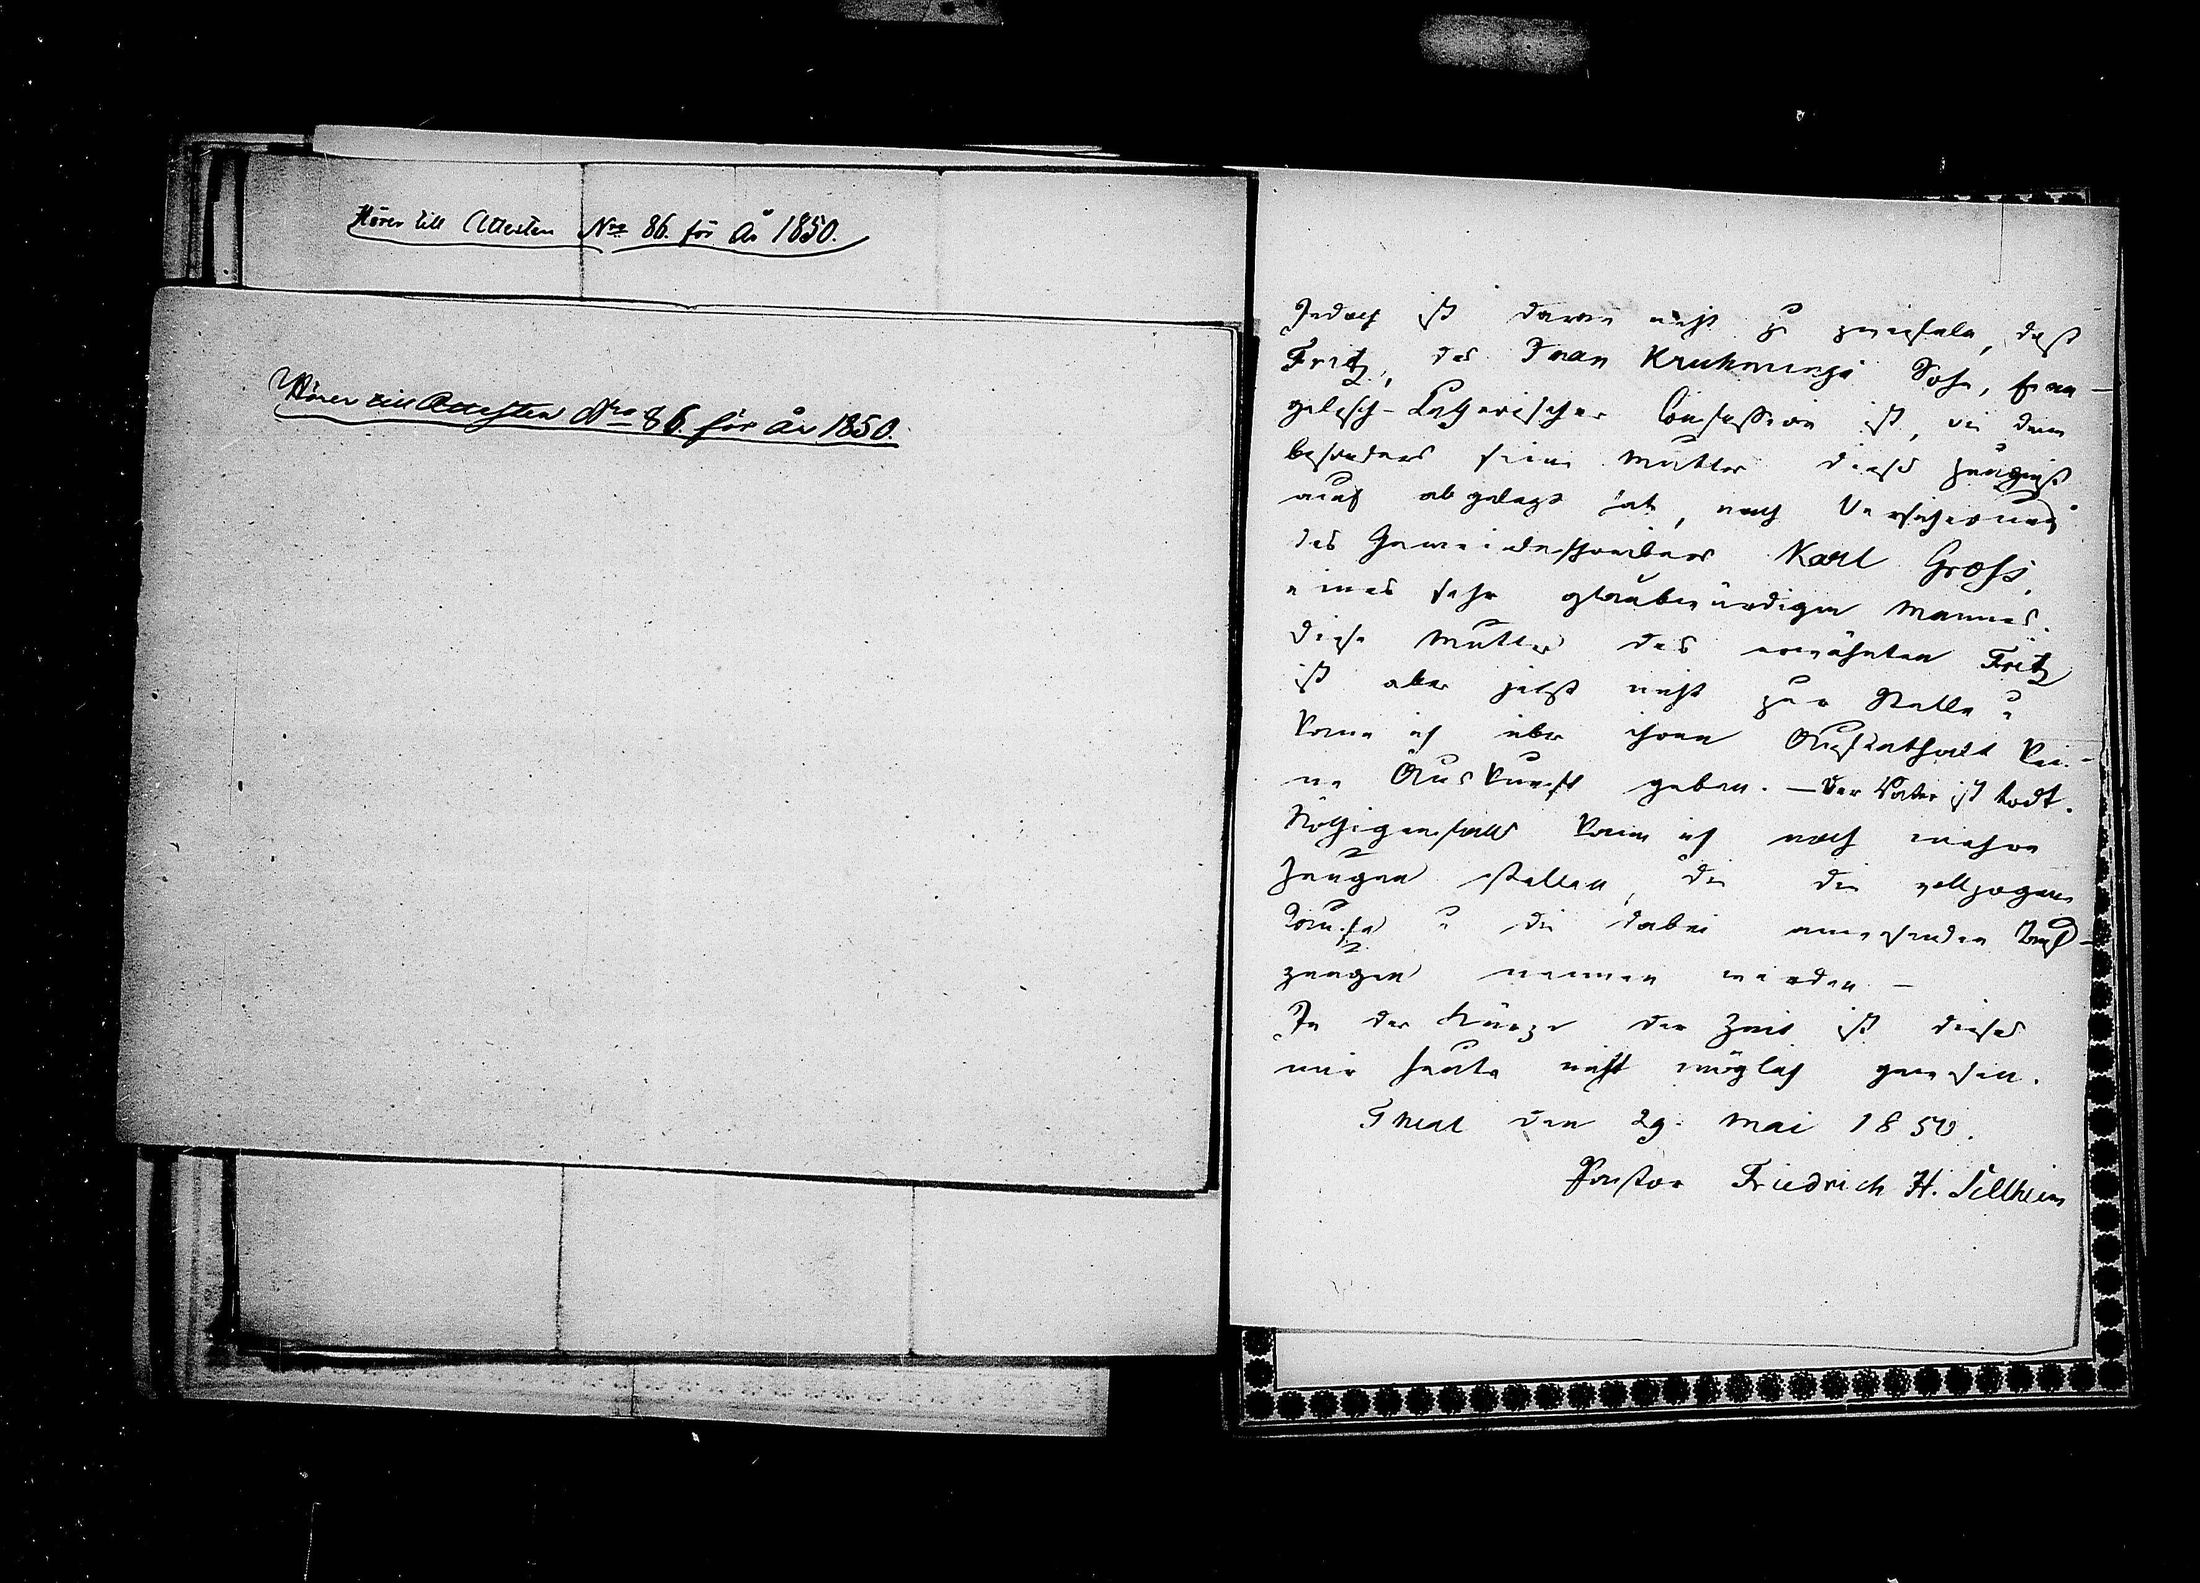 Hörer till Attesten Nro 86. för År 1850.
Hörer till Attesten Nro 86. för År 1850.
Jedoch ist daran nicht zu zweifeln, daß
Fritz, des Iwan Kruhminsch Sohn, Evan-
gelisch-Lutherischer Confession ist, in dem
besonders seine Mutter dieses Zeugniß
auch abgelegt hat, nach Versicherung
des Gemeindeschreibers Karl Gross,
eines sehr glaubwürdigen Mannes.
Diese Mutter des erwähnten Fritz
ist aber jetzt nicht zur Stelle u
kann ich über ihren Aufenthalt kei-
ne Auskunft geben. — Der Vater ist todt.
Nöthigenfalls kann ich noch mehre
Zeugen stellen, die die vollzogene
Taufe u die dabei anwesenden Tauf-
zeugen nennen werden —
In der Kürze der Zeit ist dieses
mir heute nicht möglich gewesen.
den 29. Mai 1850.
Pastor Friedrich H. Sellheim